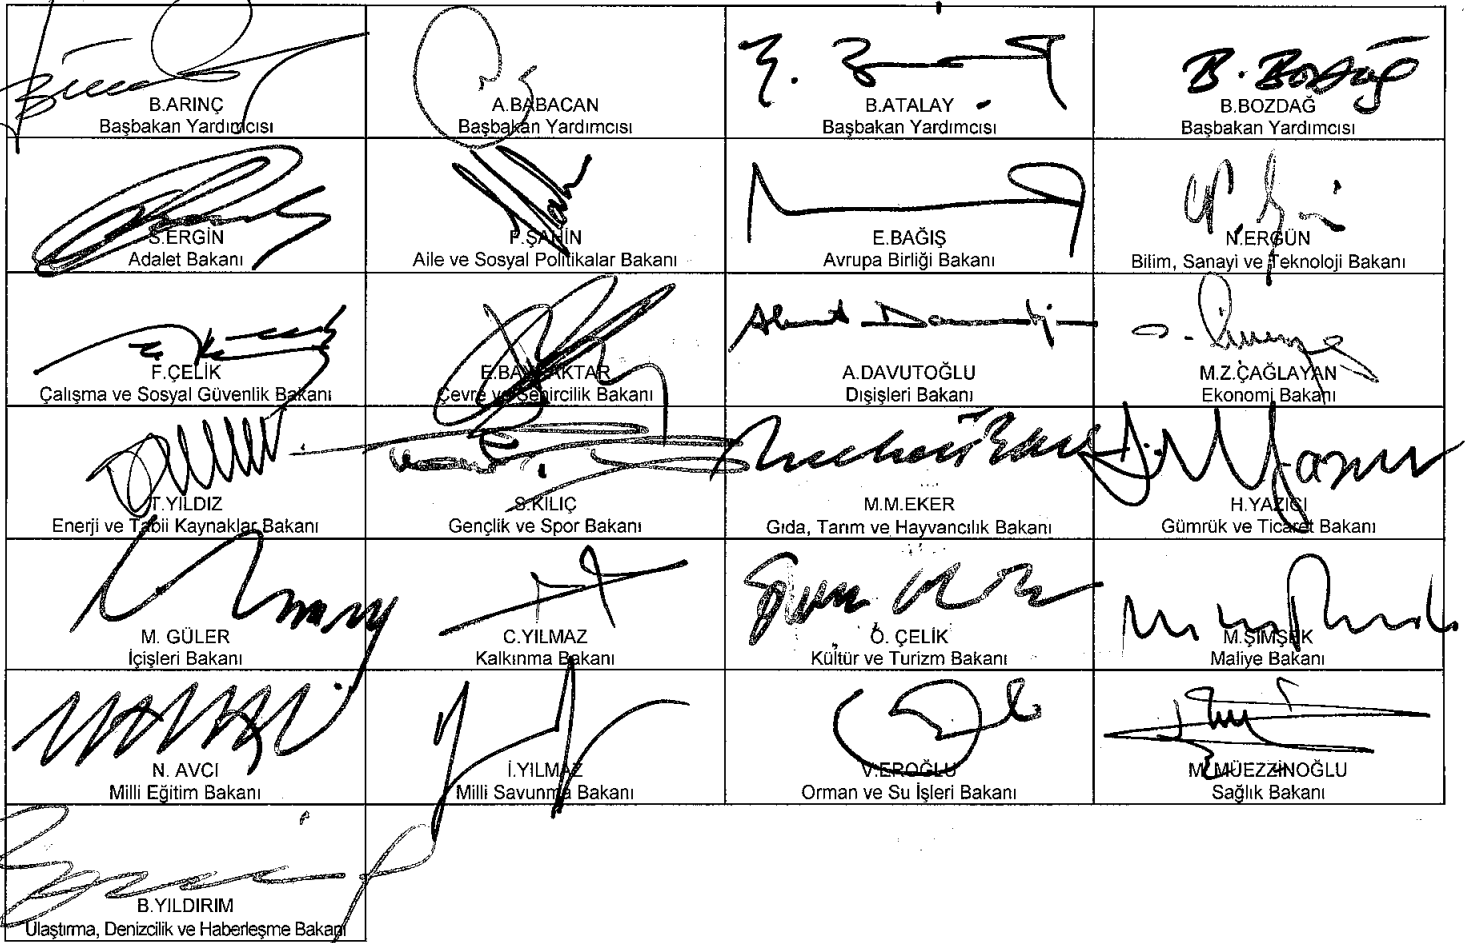 B.ARINÇ
Başbakan Yardımcısı
A.BABACAN
Başbakan Yardımcısı
B.ATALAY
Başbakan Yardımcısı
B. Bozdağ
B.BOZDAĞ
Başbakan Yardımcısı
S.ERGİN
Adalet Bakanı
F.ŞAHİN
Aile ve Sosyal Politikalar Bakanı
E.BAĞIŞ
Avrupa Birliği Bakanı
N.ERGÜN
Bilim, Sanayi ve Teknoloji Bakanı
F.ÇELİK
Çalışma ve Sosyal Güvenlik Bakanı
E.BAYRAKTAR
Çevre ve Şehircilik Bakanı
A.DAVUTOĞLU
Dışişleri Bakanı
M.Z.ÇAĞLAYAN
Ekonomi Bakanı
T.YILDIZ
Enerji ve Tabii Kaynaklar Bakanı
S.KILIÇ
Gençlik ve Spor Bakanı
M.M.EKER
Gıda, Tarım ve Hayvancılık Bakanı
H.YAZICI
Gümrük ve Ticaret Bakanı
M. GÜLER
İçişleri Bakanı
C.YILMAZ
Kalkınma Bakanı
Ö. ÇELİK
Kültür ve Turizm Bakanı
M.ŞİMŞEK
Maliye Bakanı
N. AVCI
Milli Eğitim Bakanı
İ.YILMAZ
Milli Savunma Bakanı
V.EROĞLU
Orman ve Su İşleri Bakanı
M. MÜEZZİNOĞLU
Sağlık Bakanı
B.YILDIRIM
Ulaştırma, Denizcilik ve Haberleşme Bakanı